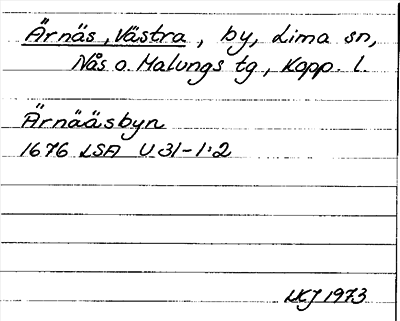 Ärnäs, Västra, by, Lima sn,
Nås o. Malungs tg, Kopp. l.
Ärnääsbyn
1676 LSA U 31-1:2
LKJ 1973